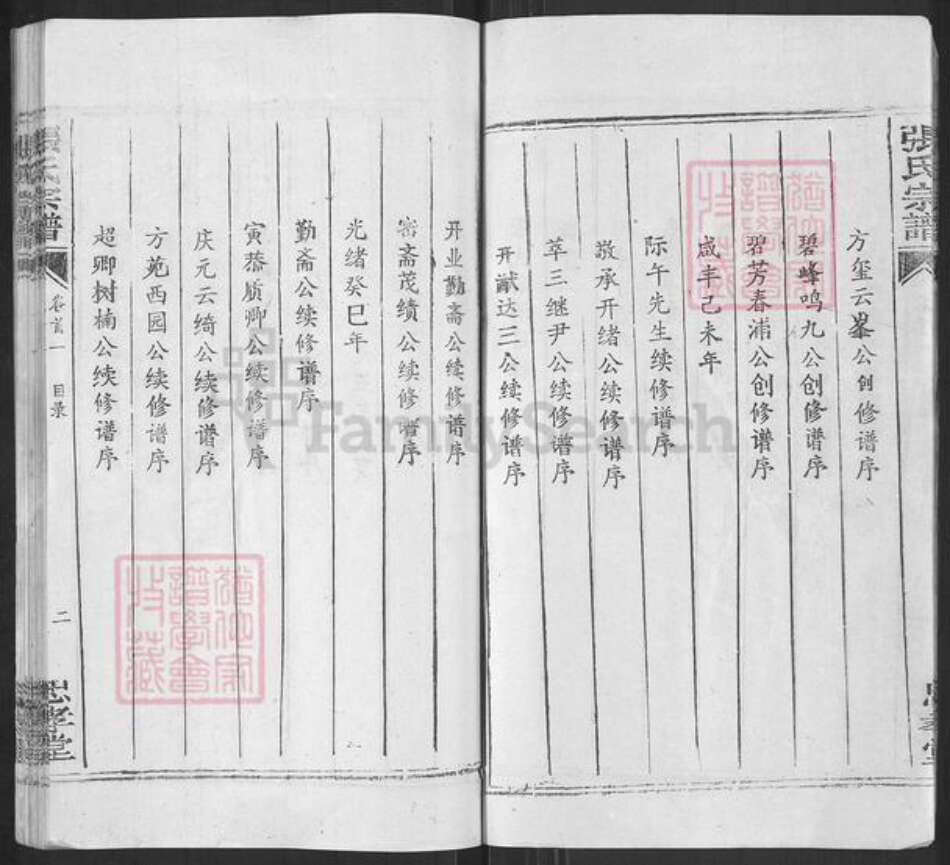 張氏宗譜
方玺云峯公创修谱序
碧峰鸣九公创修谱序
碧芳春浦公创修谱序
咸丰己未年
际午先生续修谱序
敬承开绪公续修谱序
萃三继尹公续修谱序
开猷达三公续修谱序
开业勤斋公续修谱序
斋茂绩公续修谱序
光绪癸巳年
勤斋公续修谱序
寅恭质卿公续修谱序
庆元云绮公续修谱序
方苑西园公续修谱序
超卿树楠公续修谱序
張氏宗譜
卷首一
目录
二
忠孝堂
FamilySearch